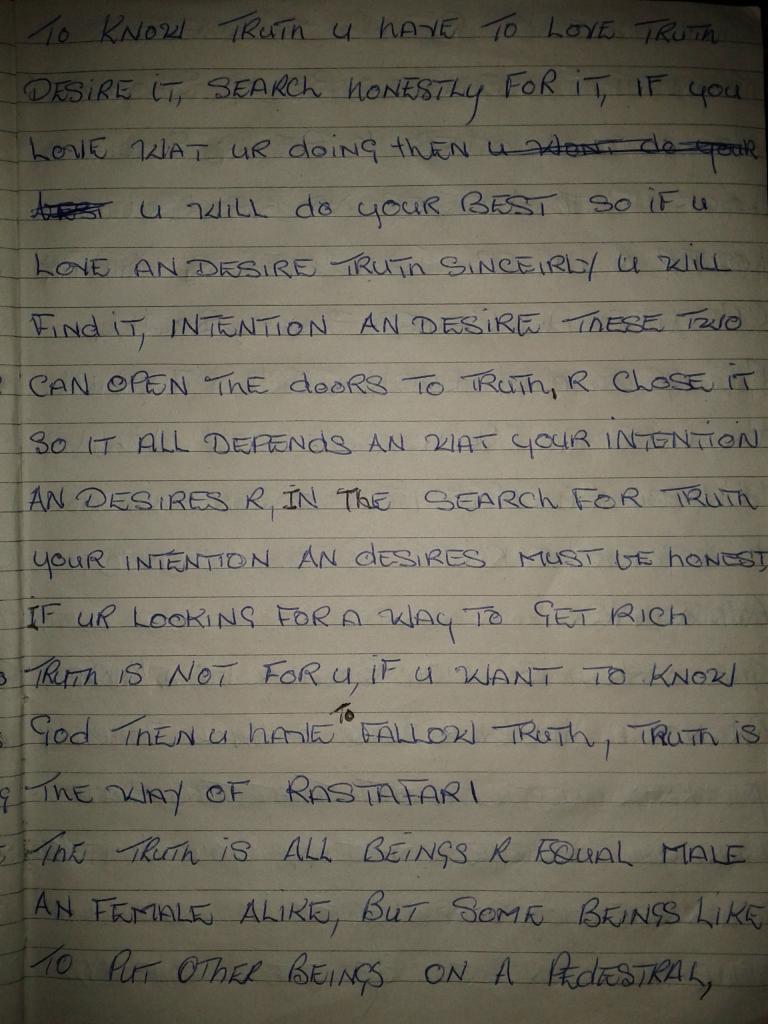 TO KNOW TRUTH U HAVE TO LOVE TRUTH
DESIRE IT, SEARCH HONESTLY FOR IT, IF you
LOVE WAT UR doING thEN u wont do your
best U WILL do YOUR BEST SO IF U
LOVE AN DESIRE TRUTH SINCEIRLY U WILL
FINd IT, INTENTION AN DESIRE THESE TWO
CAN OPEN THE dooRS TO TRUTH, R CLOSE IT
SO IT ALL DEPENDS AN WAT YOUR INTENTION
AN DESIRES R, IN THE SEARCH FOR TRUTH
YOUR INTENTION AN dESIRES MUST BE HONEST,
IF UR LOOKING FOR A WAY TO GET RICH
TRUTH IS NOT FOR U, IF U WANT TO KNOW
God THEN U HAVE TO FALLOW TRUTH, TRUTH IS
THE WAY OF RASTAFARI
THE TRUTH IS ALL BEINGS R EQUAL MALE
AN FEMALE ALIKE, BUT SOME BEINGS LIKE
TO PUT OTHER BEINGS ON A PEdESTRAL,